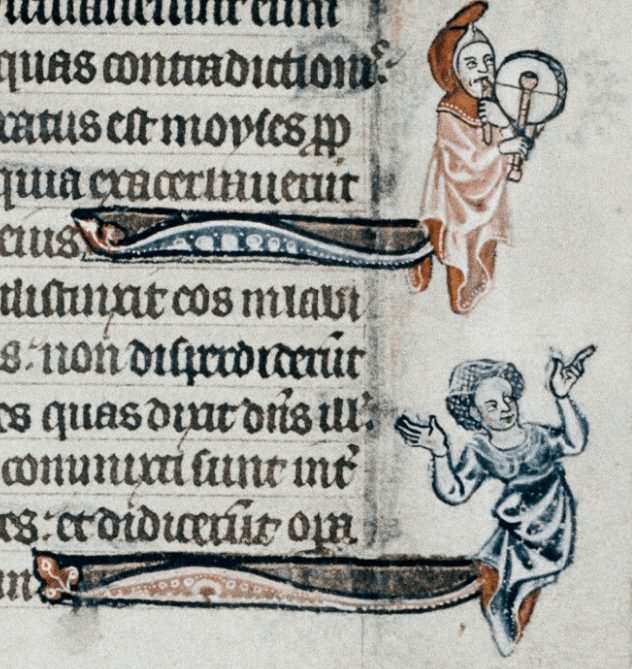 eum
quas contradictionis
xatus est moyses pp
quia exacerbauerūt
eius
distinxit eos in labi
s: non disperdiderūt
es quas dixit dn̄s ill'
commixti sunt int̄
es: et didicerūt op̄a
m